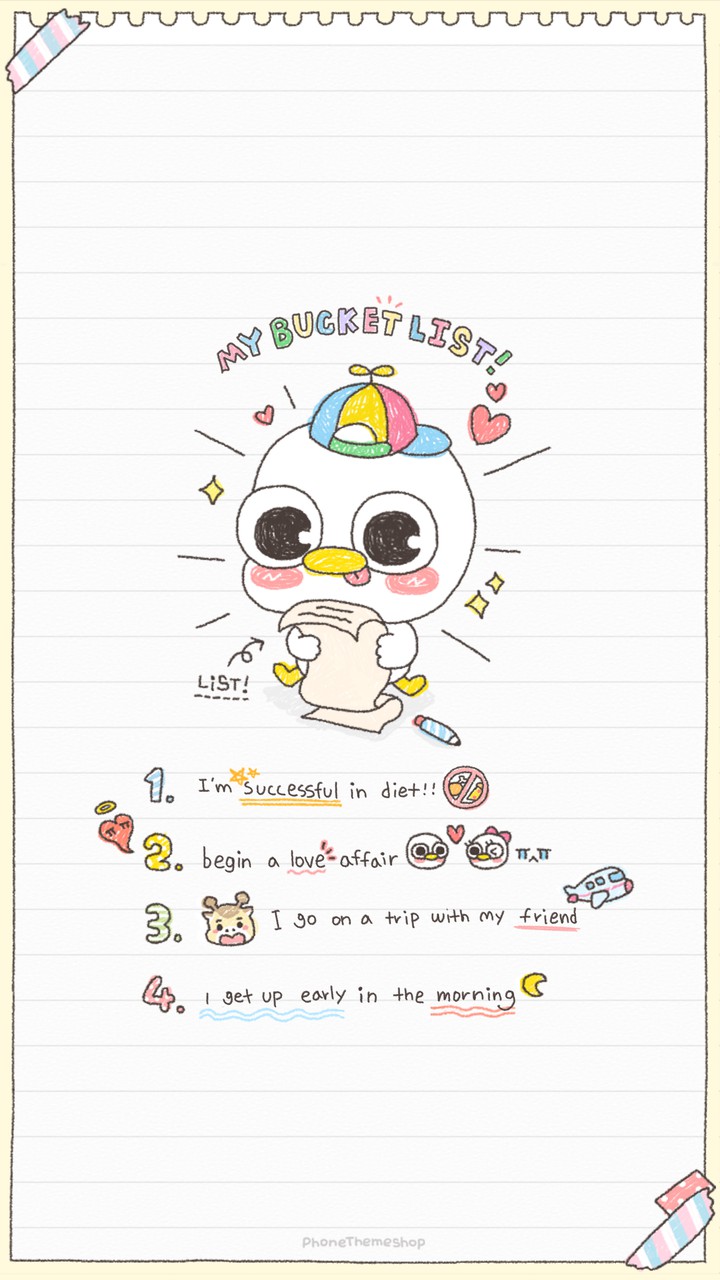 MY BUCKET LIST!
LIST!
1. I'm successful in diet!!
2. begin a love affair ㅠㅅㅠ
3. I go on a trip with my friend
4. I get up early in the morning
PhoneThemeshop